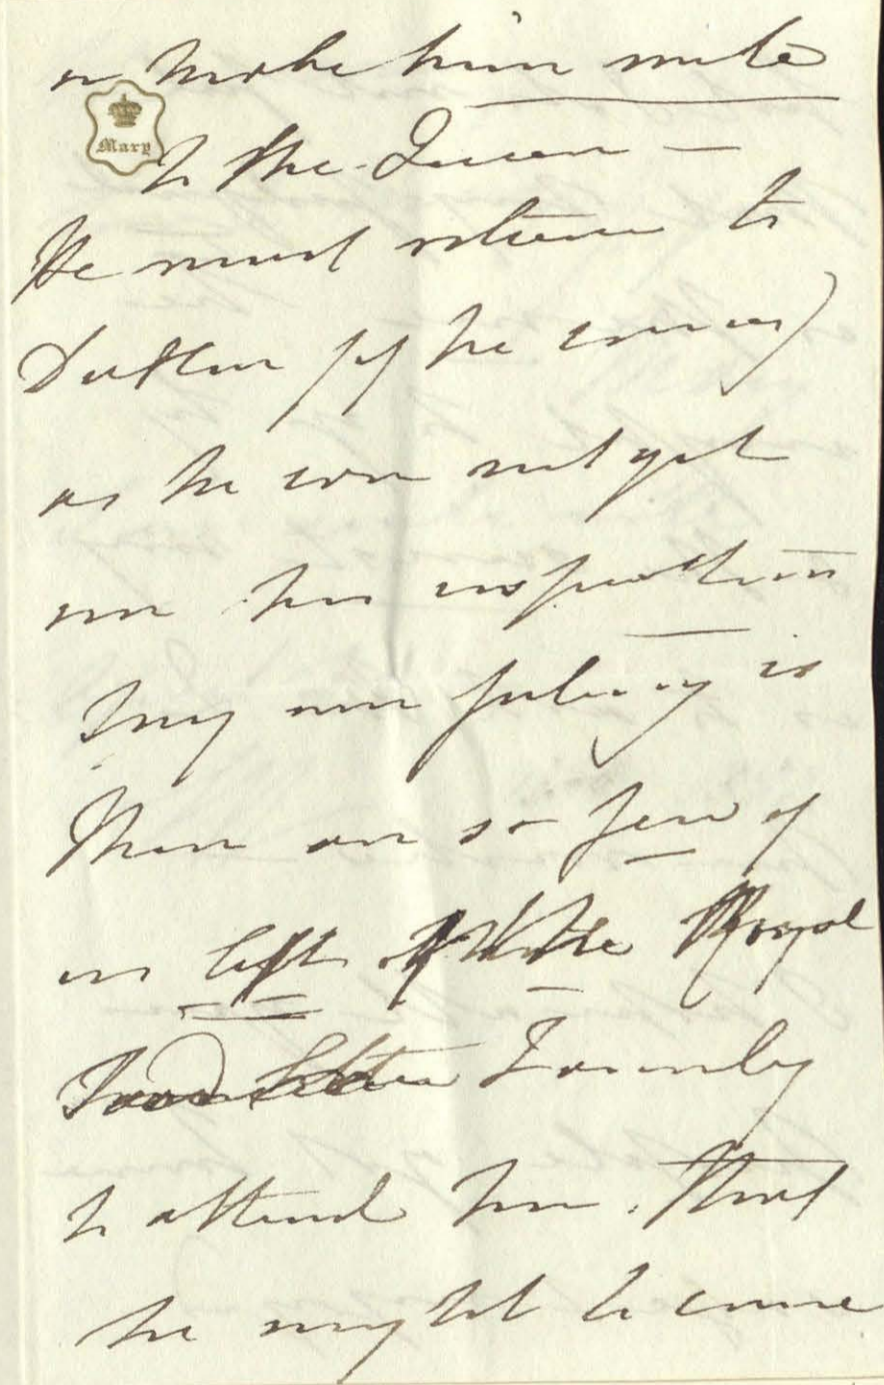 or make him write
Mary
to the Queen —
He must return to
Dublin if he comes
as he can not get
on his
My own feeling is
There are so few of
us left of the Royal
Family
to attend him. That
he ought to come